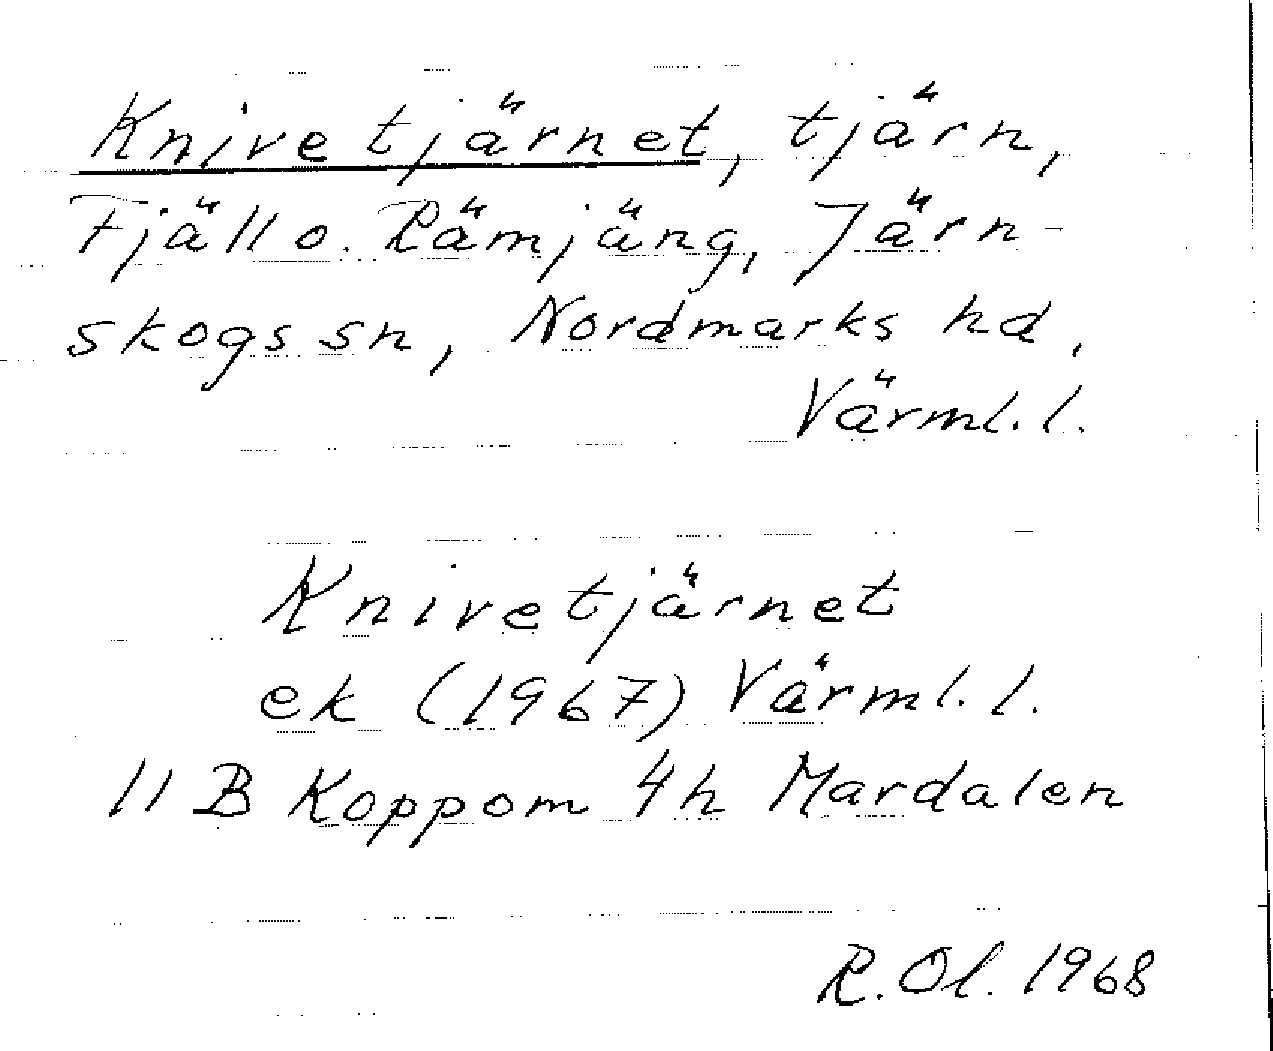 Knivetjärnet, tjärn,
Fjäll o. Rämjäng, Järn-
skogs sn, Nordmarks hd,
Värml. l.
Knivetjärnet
ek (1967) Värml. l.
11 B Koppom 4h Mardalen
R. Ol. 1968